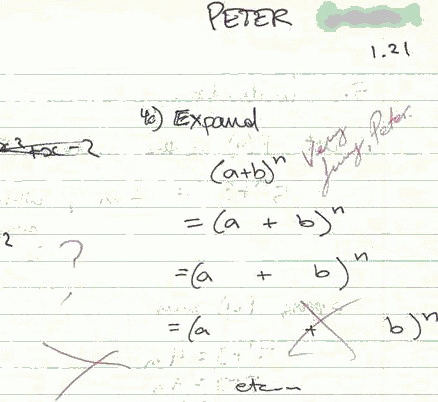 PETER
1.21
4c) Expand
Very funny, Peter.
(a+b)ⁿ
= (a + b)ⁿ
2
?
=(a + b)ⁿ
= (a + b)ⁿ
etc...